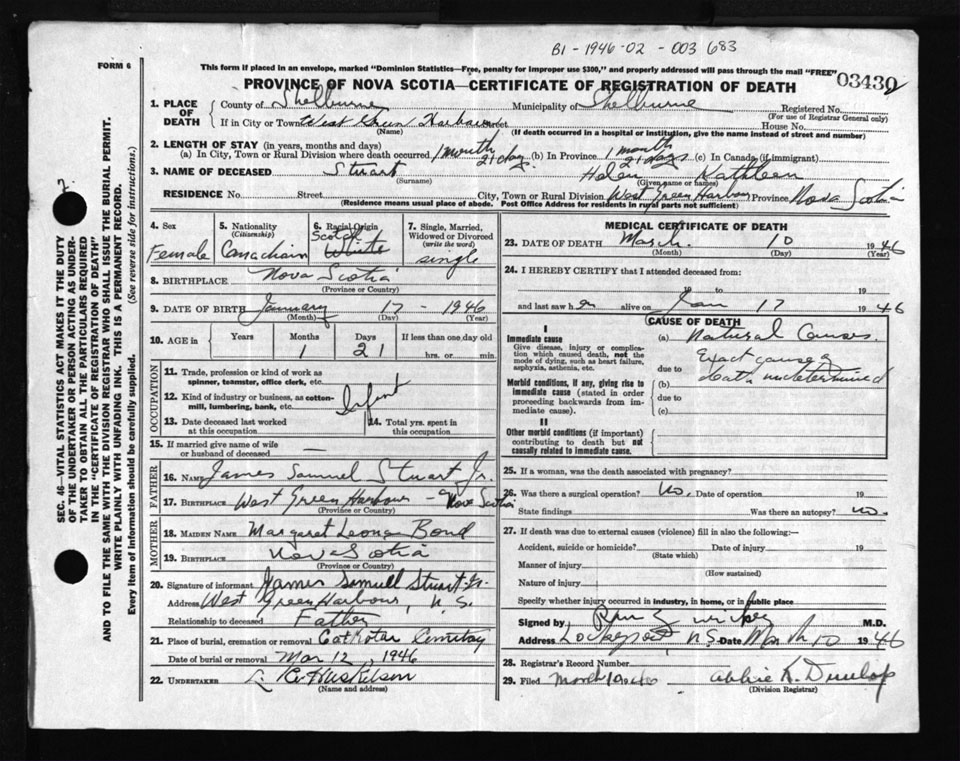 B1 - 1946 - 02 - 003 683
FORM 6
This form if placed in an envelope, marked "Dominion Statistics—Free, penalty for improper use $300," and properly addressed will pass through the mail "FREE"
03430
PROVINCE OF NOVA SCOTIA—CERTIFICATE OF REGISTRATION OF DEATH
1. PLACE OF DEATH County of Shelburne Municipality of Shelburne Registered No.
(For use of Registrar General only)
If in City or Town West Green Harbour House No.
(Name) (If death occurred in a hospital or institution, give the name instead of street and number)
2. LENGTH OF STAY (in years, months and days)
(a) In City, Town or Rural Division where death occurred 1 month 21 days (b) In Province 1 month 21 days (c) In Canada (if immigrant)
3. NAME OF DECEASED Stuart Helen Kathleen
(Surname) (Given name or names)
RESIDENCE No. Street City, Town or Rural Division West Green Harbour Province Nova Scotia
(Residence means usual place of abode. Post Office Address for residents in rural parts not sufficient)
SEC. 46—VITAL STATISTICS ACT MAKES IT THE DUTY
OF THE UNDERTAKER OR PERSON ACTING AS UNDER-
TAKER TO OBTAIN ALL THE PARTICULARS REQUIRED
IN THE "CERTIFICATE OF REGISTRATION OF DEATH"
AND TO FILE THE SAME WITH THE DIVISION REGISTRAR WHO SHALL ISSUE THE BURIAL PERMIT.
WRITE PLAINLY WITH UNFADING INK. THIS IS A PERMANENT RECORD.
Every item of information should be carefully supplied. (See reverse side for instructions.)
4. Sex
Female
5. Nationality
(Citizenship)
Canadian
6. Racial Origin
Scotch
White
7. Single, Married,
Widowed or Divorced
(write the word)
single
8. BIRTHPLACE Nova Scotia
(Province or Country)
9. DATE OF BIRTH January 17 - 1946
(Month) (Day) (Year)
10. AGE in Years Months Days If less than one day old
1 21 hrs. or min.
OCCUPATION
11. Trade, profession or kind of work as
spinner, teamster, office clerk, etc.
12. Kind of industry or business, as cotton-
mill, lumbering, bank, etc.
Infant
13. Date deceased last worked
at this occupation
14. Total yrs. spent in
this occupation
15. If married give name of wife
or husband of deceased —
FATHER
16. NAME James Samuel Stuart Jr.
17. BIRTHPLACE West Green Harbour - Nova Scotia
(Province or Country)
MOTHER
18. MAIDEN NAME Margaret Leona Bond
19. BIRTHPLACE Nova Scotia
(Province or Country)
20. Signature of informant James Samuell Stuart Jr.
Address West Green Harbour, N.S.
Relationship to deceased Father
21. Place of burial, cremation or removal Cemetay
Date of burial or removal Mar 12, 1946
22. UNDERTAKER
(Name and address)
MEDICAL CERTIFICATE OF DEATH
23. DATE OF DEATH March 10 1946
(Month) (Day) (Year)
24. I HEREBY CERTIFY that I attended deceased from:
19 to 19
and last saw h er alive on Jan 17 1946
CAUSE OF DEATH
I
Immediate cause
Give disease, injury or complica-
tion which caused death, not the
mode of dying, such as heart failure,
asphyxia, asthenia, etc.
(a) Natural Causes.
Exact cause of
due to
death undetermined
Morbid conditions, if any, giving rise to
immediate cause (stated in order
proceeding backwards from im-
mediate cause).
(b)
due to
(c)
II
Other morbid conditions (if important)
contributing to death but not
causally related to immediate cause.
25. If a woman, was the death associated with pregnancy?
26. Was there a surgical operation? No. Date of operation 19
State findings Was there an autopsy? no.
27. If death was due to external causes (violence) fill in also the following:
Accident, suicide or homicide? Date of injury 19
(State which)
Manner of injury
(How sustained)
Nature of injury
Specify whether injury occurred in industry, in home, or in public place
Signed by M.D.
Address Lockeport, N.S. Date March 10 1946
28. Registrar's Record Number
29. Filed March 19 Abbie K. Dunlop
(Division Registrar)